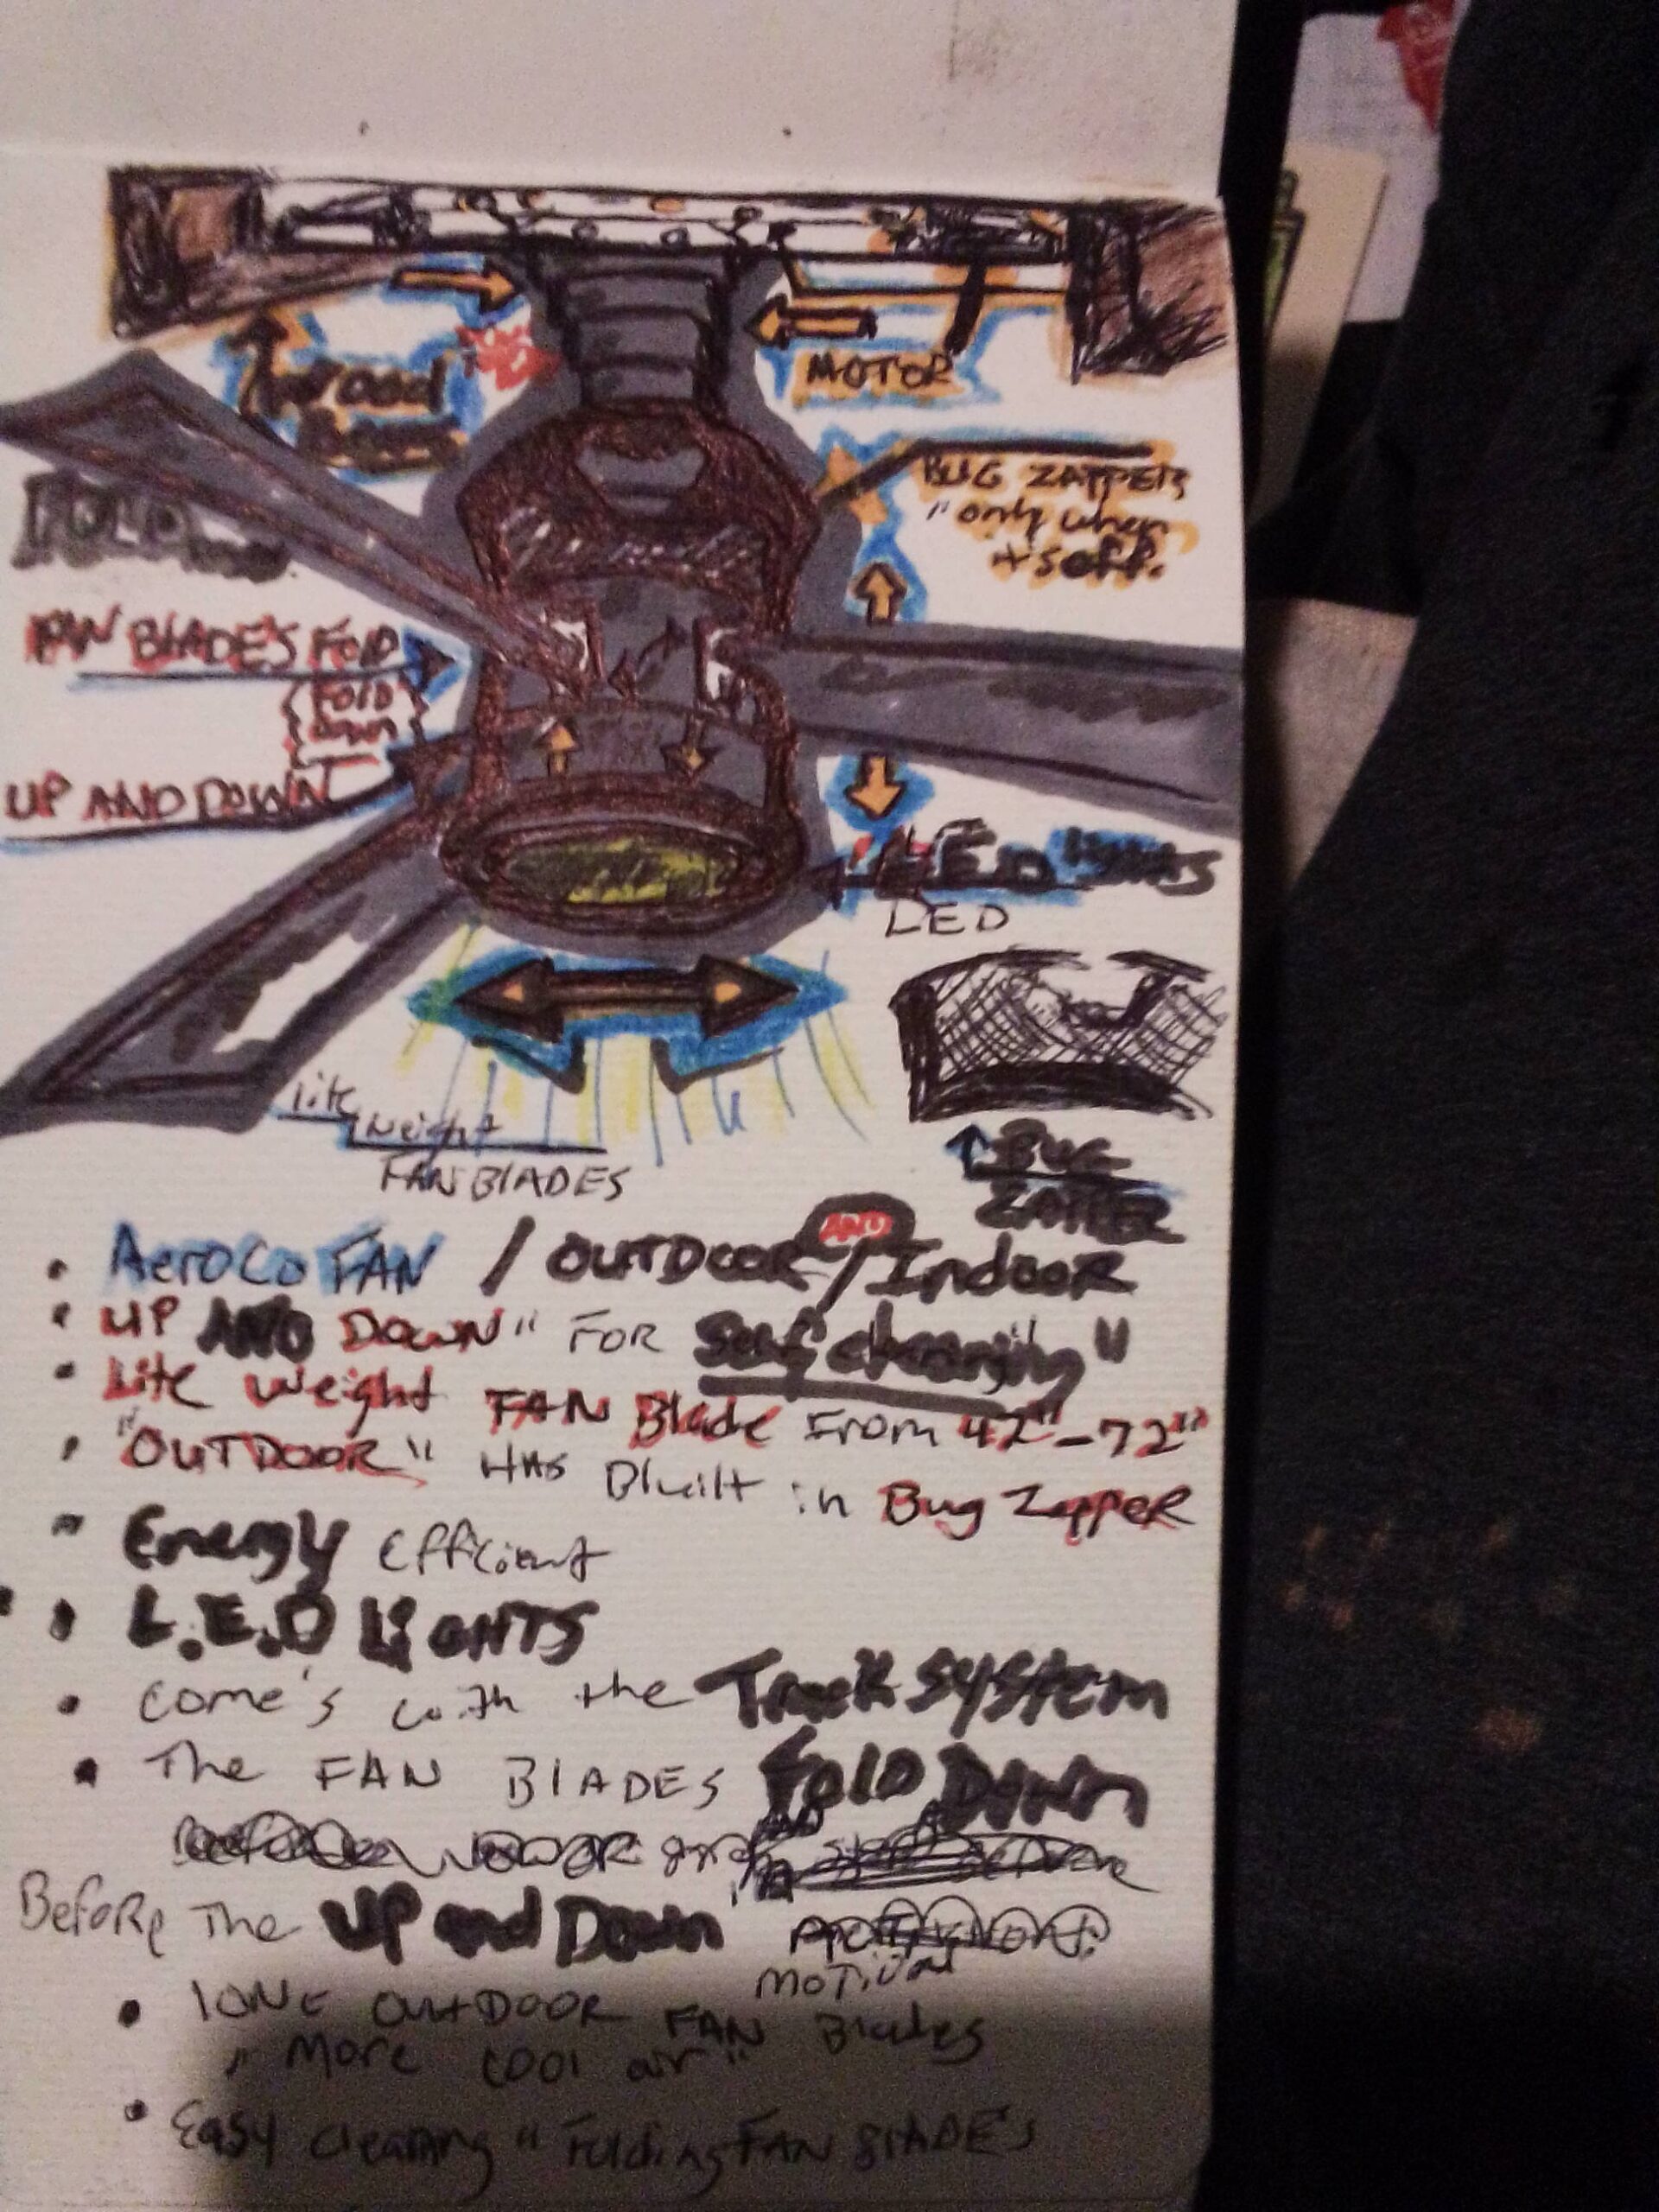 MOTOR
wood
Beam
BUG ZAPPER
"only when
itsoff.
FOLD
FAN BLADES FOLD
{FOLD}
{Down}
UP AND DOWN
LED lights
LED
lite
weight
FAN BLADES
BUG
ZAPPER
• AeroCo FAN / OUTDOOR AND / IndooR
• UP AND DOWN" FOR Self cleaning"
• Lite weight FAN Blade From 42"-72"
• "OUTDOOR" HAS Bluilt in Bug ZappeR
• Energy efficient
• L.E.D LIGHTS
• come's with the Track system
• The FAN BlADES FOlD DOWN
BefoRe The UP and Down"
MOTION
• lONG OutDOOR FAN Blades
" More cool air"
• Easy cleaning " Folding FAN BlADES